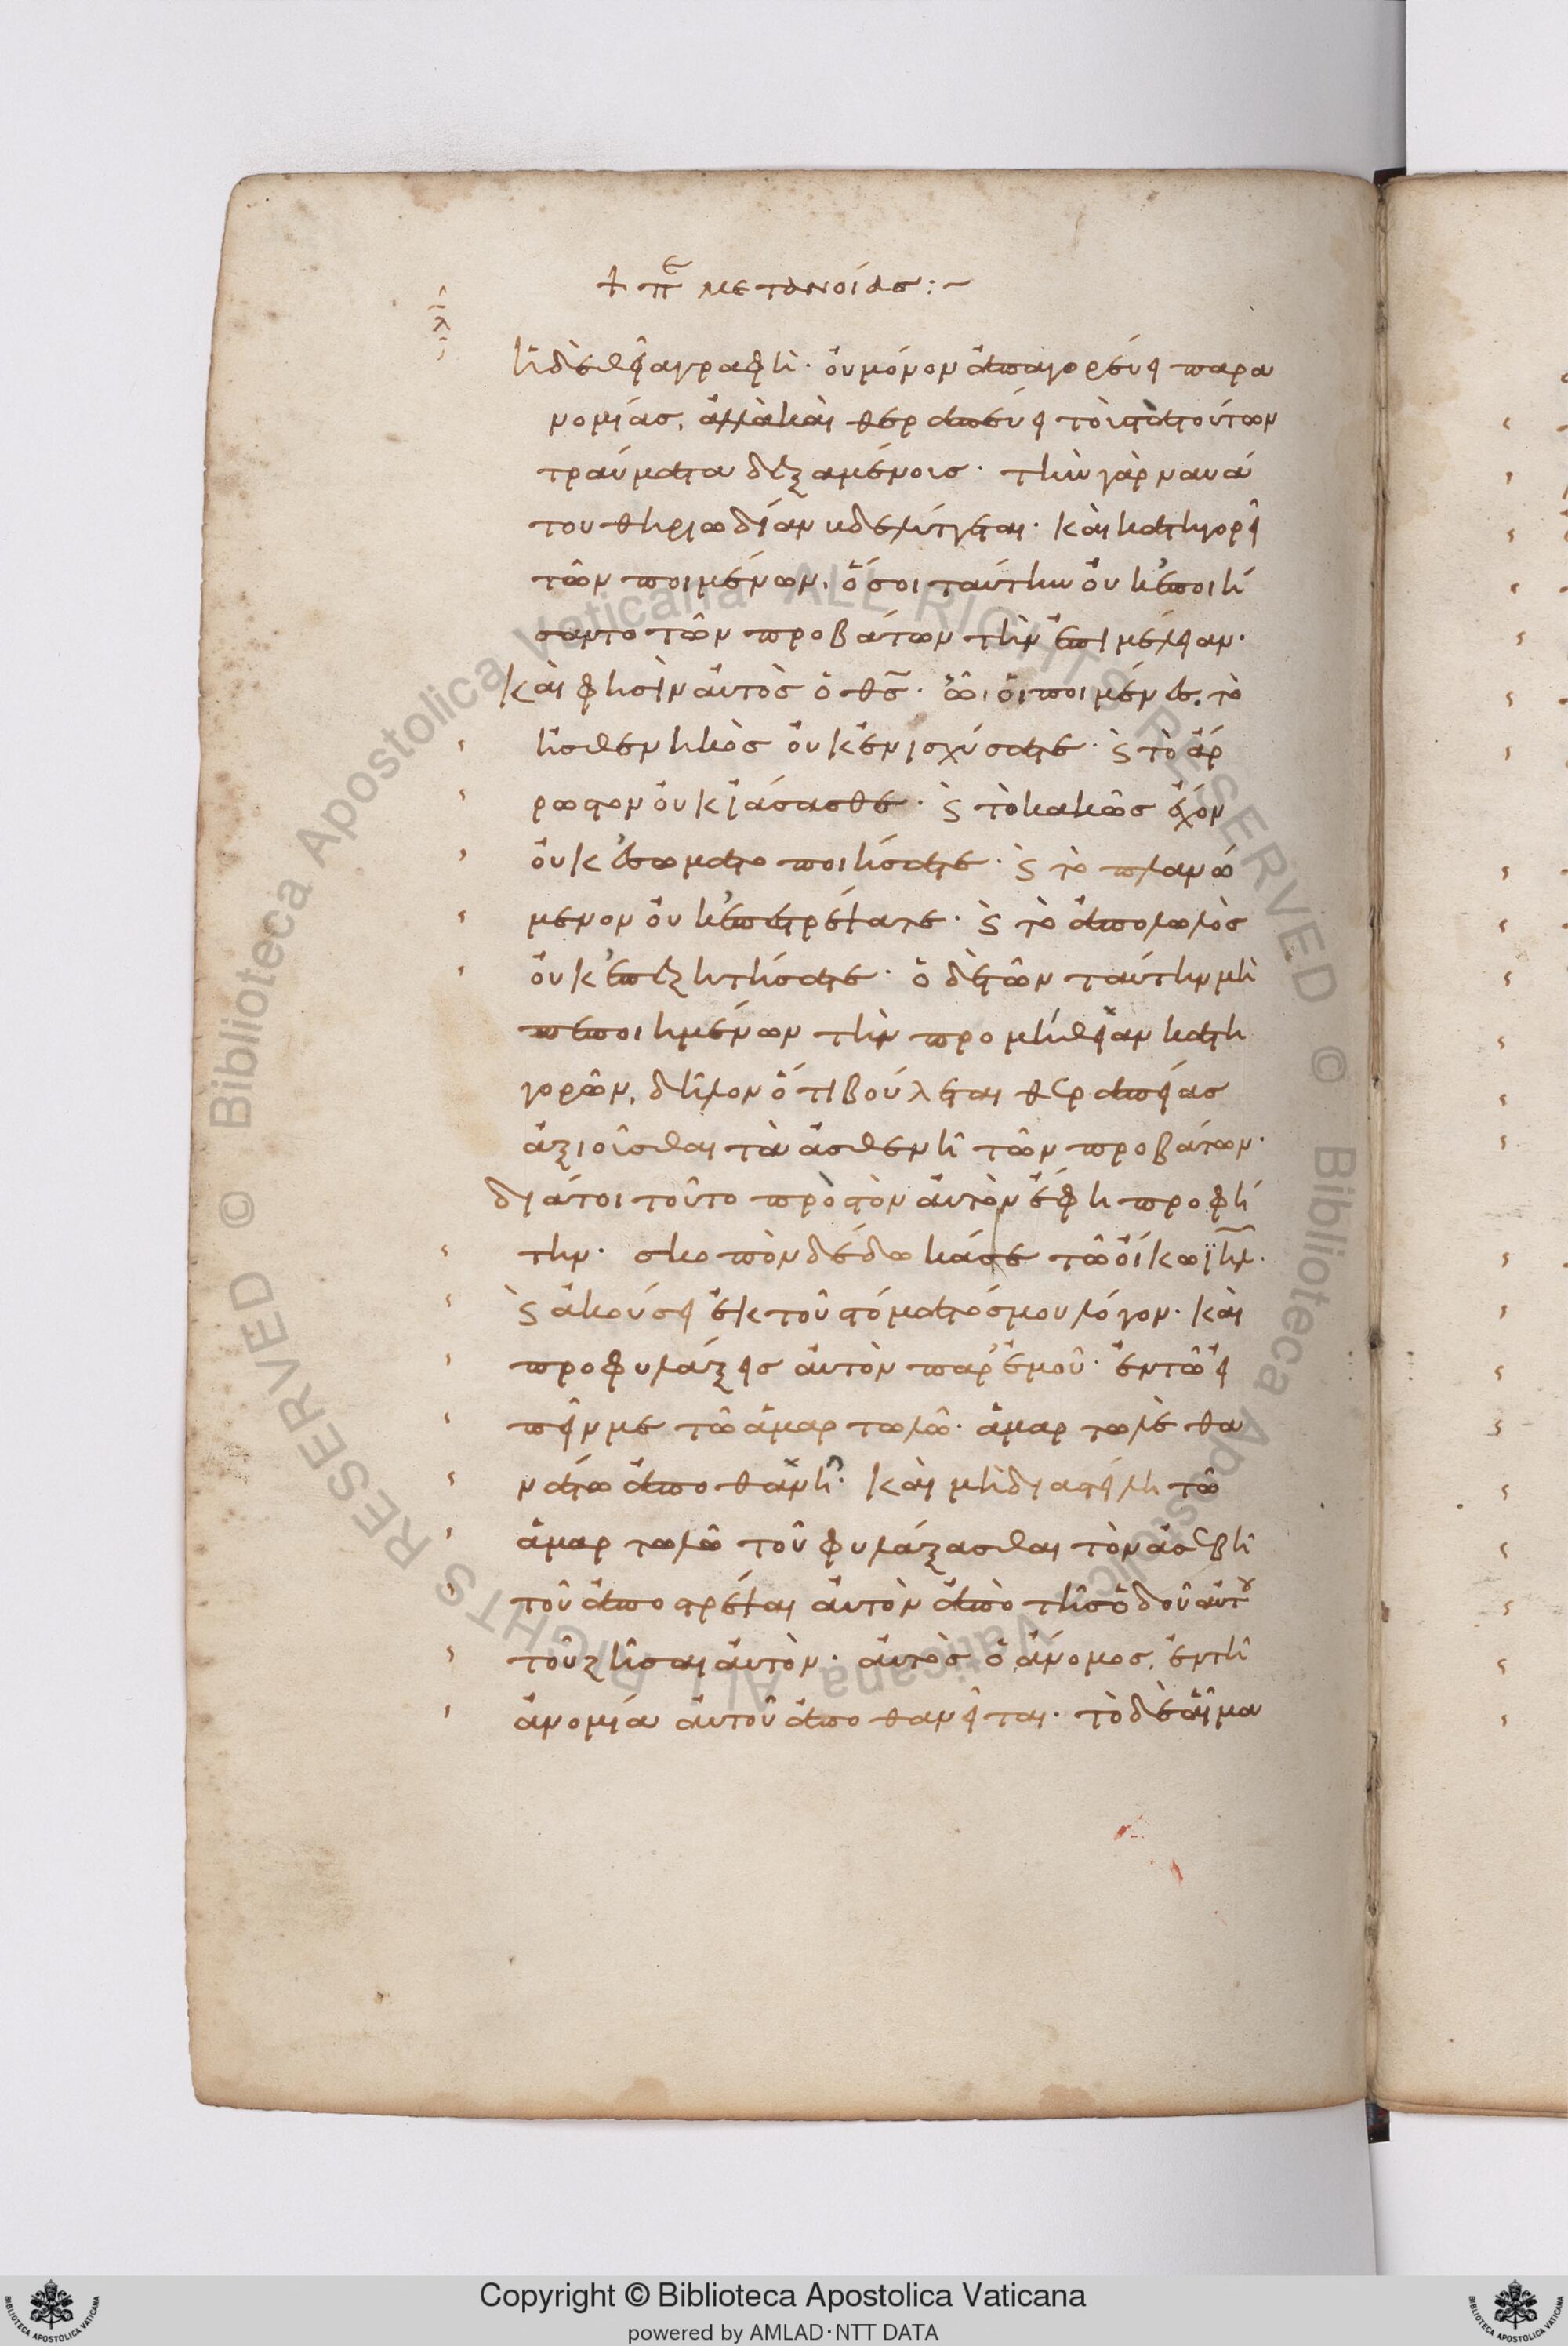 + πε μετανοίας :~
ἡ δὲ θεία γραφὴ· οὐ μόνον ἀπαγορεύει παρα
νομίας, ἀλλὰ καὶ θεραπεύει τοῖς πατοῦσι τῶν
τραύματα δεξαμένοις· τὴν γὰρ ναυά
του θηριωδίαν βδελύττεται· καὶ κατηγορεῖ
τῶν ποιμένων, ὅσοι ταύτην οὐκ ἐποιή
σαντο τῶν προβάτων τὴν ἐπιμέλειαν·
καὶ φησὶν αὐτὸς ὁ θς̅· ὦ, οἱ ποιμένες, τὸ
ἠσθενηκὸς οὐκ ἐνισχύσατε· ϗ τὸ ἄρ
ρωστον οὐκ ἰάσασθε· ϗ τὸ κακῶς ἔχον
οὐκ ἐσωματοποιήσατε· ϗ τὸ πλανώ
μενον οὐκ ἐπεστρέψατε· ϗ τὸ ἀπολωλὸς
οὐκ ἐπεζητήσατε· ὁ δὲ τῶν ταύτην μὴ
πεποιημένων τὴν προμήθειαν κατη
γορῶν, δῆλον ὅτι βούλεται θεραπείας
ἀξιοῦσθαι τὰ ἀσθενῆ τῶν προβάτων·
διάτοι τοῦτο πρὸς τὸν αὐτὸν ἔφη προφή
την· σκοπὸν δέδωκά σε τῶ οἴκω ϊηλ̅·
ϗ ἀκούσει ἐκ τοῦ στόματός μου λόγον· καὶ
προφυλάξεις αὐτὸν παρ' ἐμοῦ· ἐν τῶ εἰ
πεῖν με τῶ ἁμαρτωλῶ· ἁμαρτωλὲ θα
νάτω ἀποθανῆ· καὶ μὴ διαστείλη τῶ
ἁμαρτωλῶ τοῦ φυλάξασθαι τὸν ἀσεβῆ
τοῦ ἀποστρέψαι αὐτὸν ἀπὸ τῆς ὁδοῦ αὐτοῦ
τοῦ ζῆσαι αὐτὸν· αὐτὸς ὁ ἄνομος, ἐν τῆ
ἀνομία αὐτοῦ ἀποθανεῖται· τὸ δὲ αἷμα
Copyright © Biblioteca Apostolica Vaticana
powered by AMLAD·NTT DATA